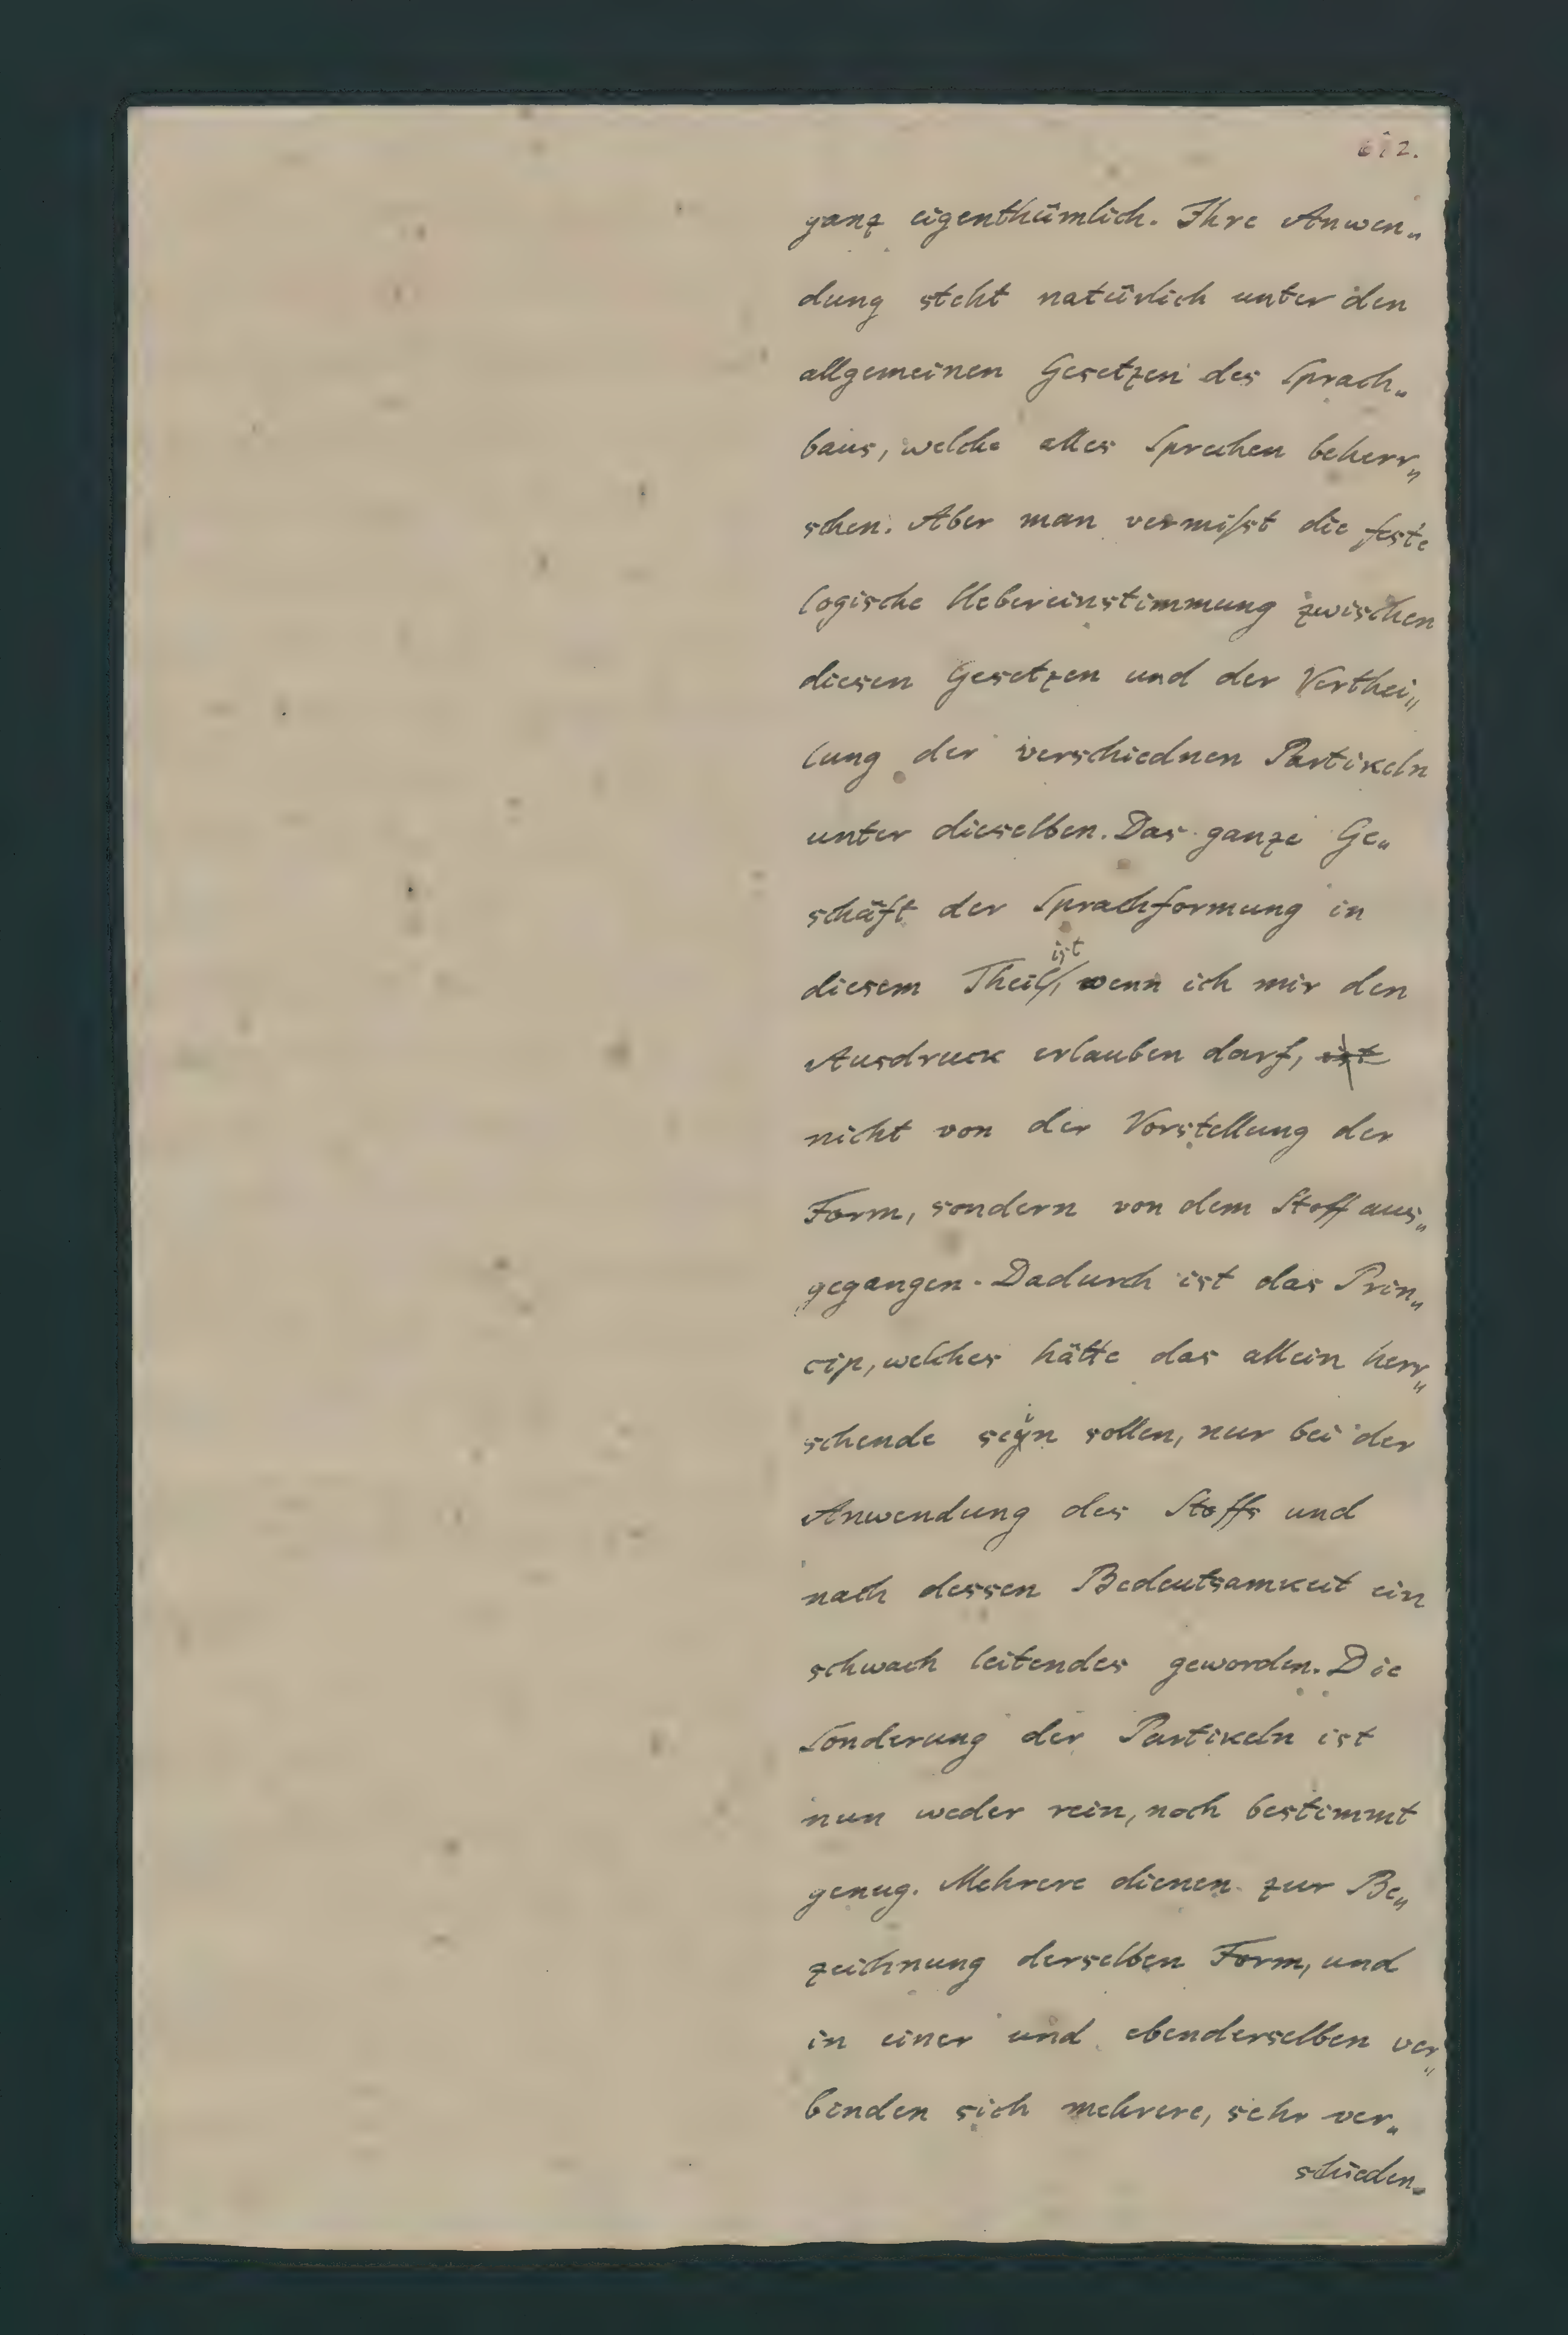 612.
ganz eigenthümlich. Ihre Anwen„
dung steht natürlich unter den
allgemeinen Gesetzen des Sprach„
baus, welche alles Sprechen beherr„
schen. Aber man vermißt die feste
logische Uebereinstimmung zwischen
diesen Gesetzen und der Verthei„
lung der verschiednen Partikeln
unter dieselben. Das ganze Ge„
schäft der Sprachformung in
ist
diesem Theil, wenn ich mir den
Ausdruck erlauben darf, ist
nicht von der Vorstellung der
Form, sondern von dem Stoff aus„
gegangen. Dadurch ist das Prin„
cip, welches hätte das allein herr„
schende seyn sollen, nur bei der
Anwendung des Stoffs und
nach dessen Bedeutsamkeit ein
schwach leitendes geworden. Die
Sonderung der Partikeln ist
nun weder rein, noch bestimmt
genug. Mehrere dienen zur Be„
zeichnung derselben Form, und
in einer und ebenderselben ver„
binden sich mehrere, sehr ver„
schieden„